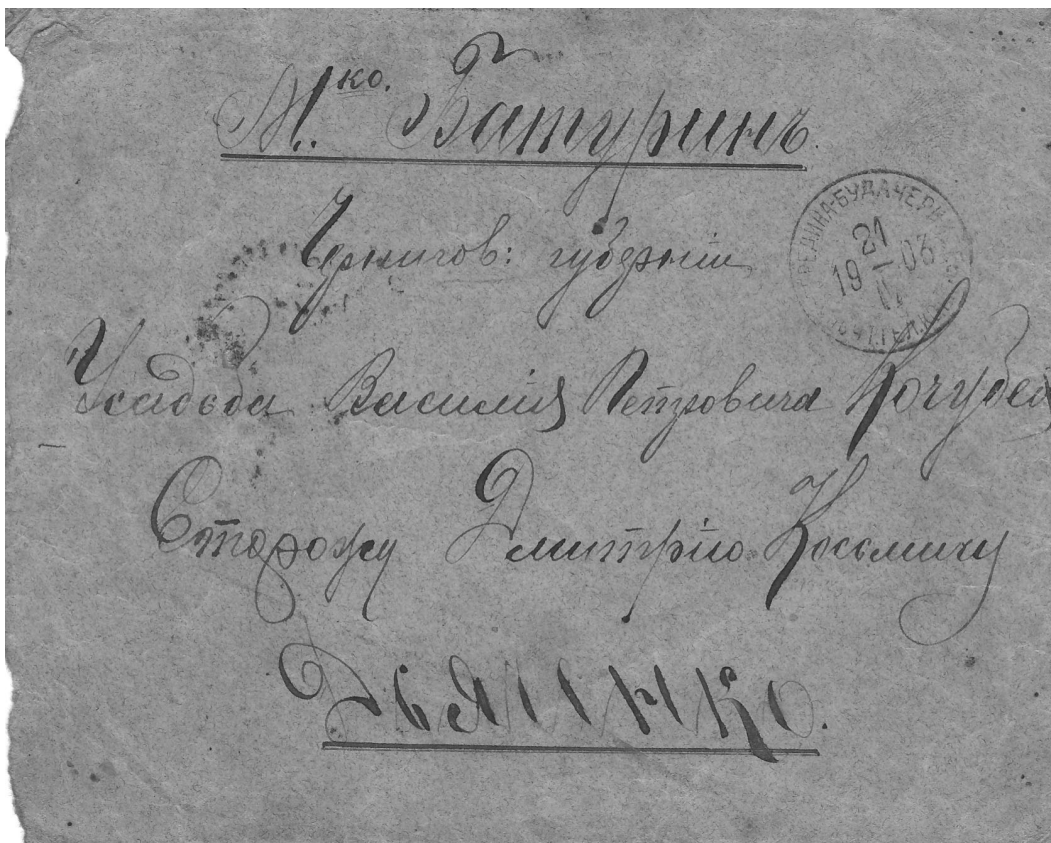 М.ко. Батуринъ.
Чернигов: губерніи
СЕРЕДИНА-БУДА ЧЕРНИГ.
21
19 03
Усадьба Василія Петровича Кочубея
Сторожу Дмитрію Косьмичу